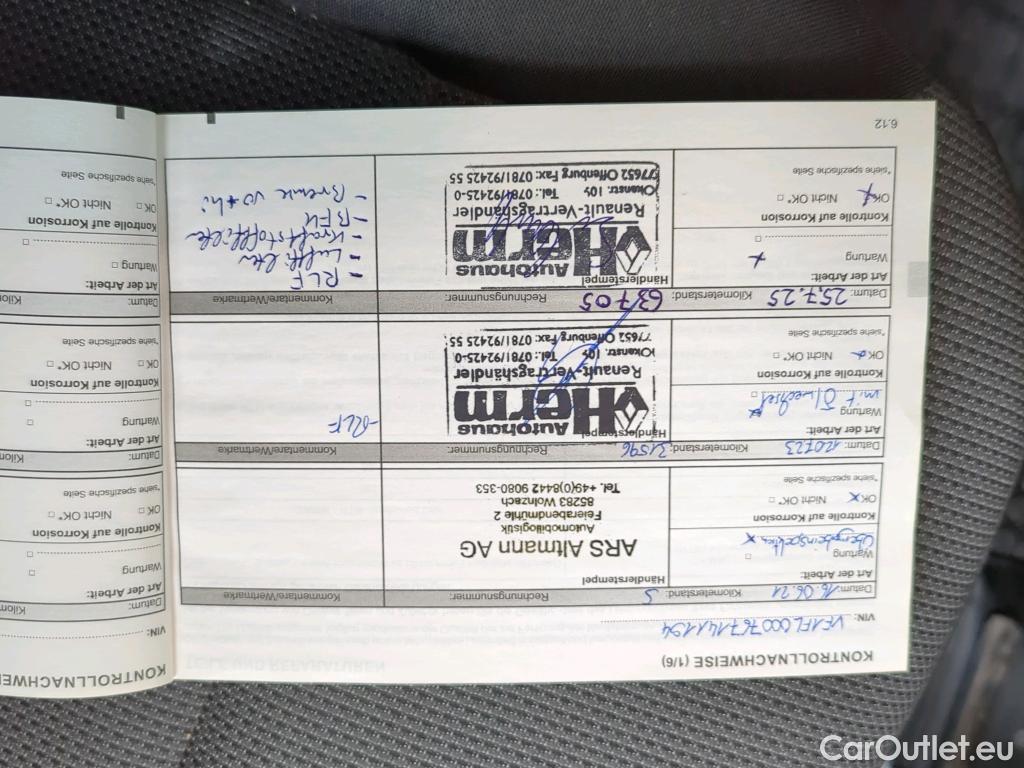 KONTROLLNACHWEISE (1/6)
VIN: VF1FL000767141194
Datum: 16.06.21 Kilometerstand: 5 Rechnungsnummer: Kommentare/Wertmarke
Art der Arbeit:
Wartung
Händlerstempel
ARS Altmann AG
Automobillogistik
Feierabendmühle 2
85283 Wolnzach
Tel. +49(0)8442 9080-353
Kontrolle auf Korrosion
OK Nicht OK*
*siehe spezifische Seite
Datum: 120723 Kilometerstand: 31596 Rechnungsnummer: Kommentare/Wertmarke
Art der Arbeit:
Wartung
mit Ölwechsel
Händlerstempel
Autohaus
Herm
Renault-Vertragshändler
Okenstr. 104 Tel.: 0781/92425-0
77652 Offenburg Fax: 0781/92425 55
Kontrolle auf Korrosion
OK Nicht OK*
*siehe spezifische Seite
Datum: 25.7.25 Kilometerstand: 63705 Rechnungsnummer: Kommentare/Wertmarke
Art der Arbeit:
Wartung
Händlerstempel
Autohaus
Herm
Renault-Vertragshändler
Okenstr. 104 Tel.: 0781/92425-0
77652 Offenburg Fax: 0781/92425 55
- RLF
- Luftfilter
- Kraftstofffilter
Kontrolle auf Korrosion
OK Nicht OK*
*siehe spezifische Seite
6.12
KONTROLLNACHWEI
VIN:
Datum: Kilom
Art der Arbeit:
Wartung
Kontrolle auf Korrosion
OK Nicht OK*
*siehe spezifische Seite
Datum: Kilom
Art der Arbeit:
Wartung
Kontrolle auf Korrosion
OK Nicht OK*
*siehe spezifische Seite
Datum: Kilom
Art der Arbeit:
Wartung
Kontrolle auf Korrosion
OK Nicht OK*
*siehe spezifische Seite
TEILE UND REPARATUREN
CarOutlet.eu